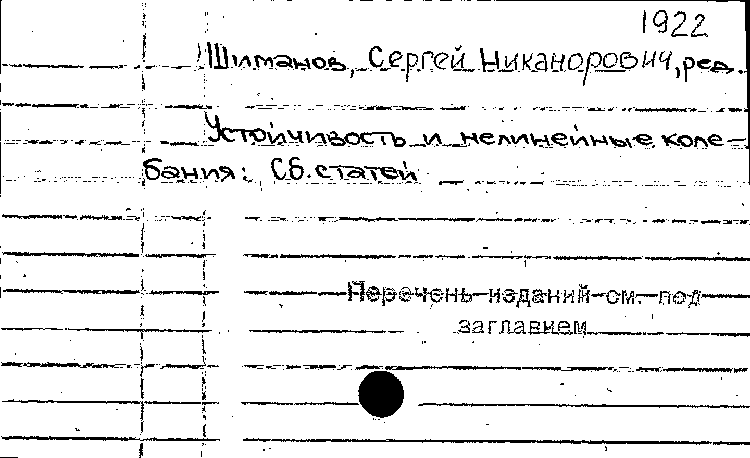 1922
Шиманов, Сергей Никанорович, ред.
Устойчивость и нелинейные коле-
бания: Сб. статей
Перечень изданий см. под
заглавием